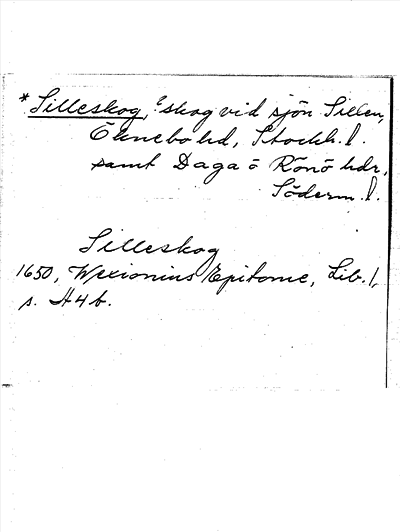 *Silleskog, ?skog vid sjön Sillen,
Öknebo hd, Stockh. l.
samt Daga o Rönö hdr,
Söderm. l.
Silleskog
1650, Wexionius Epitome, Lib. 1,
s. H4b.